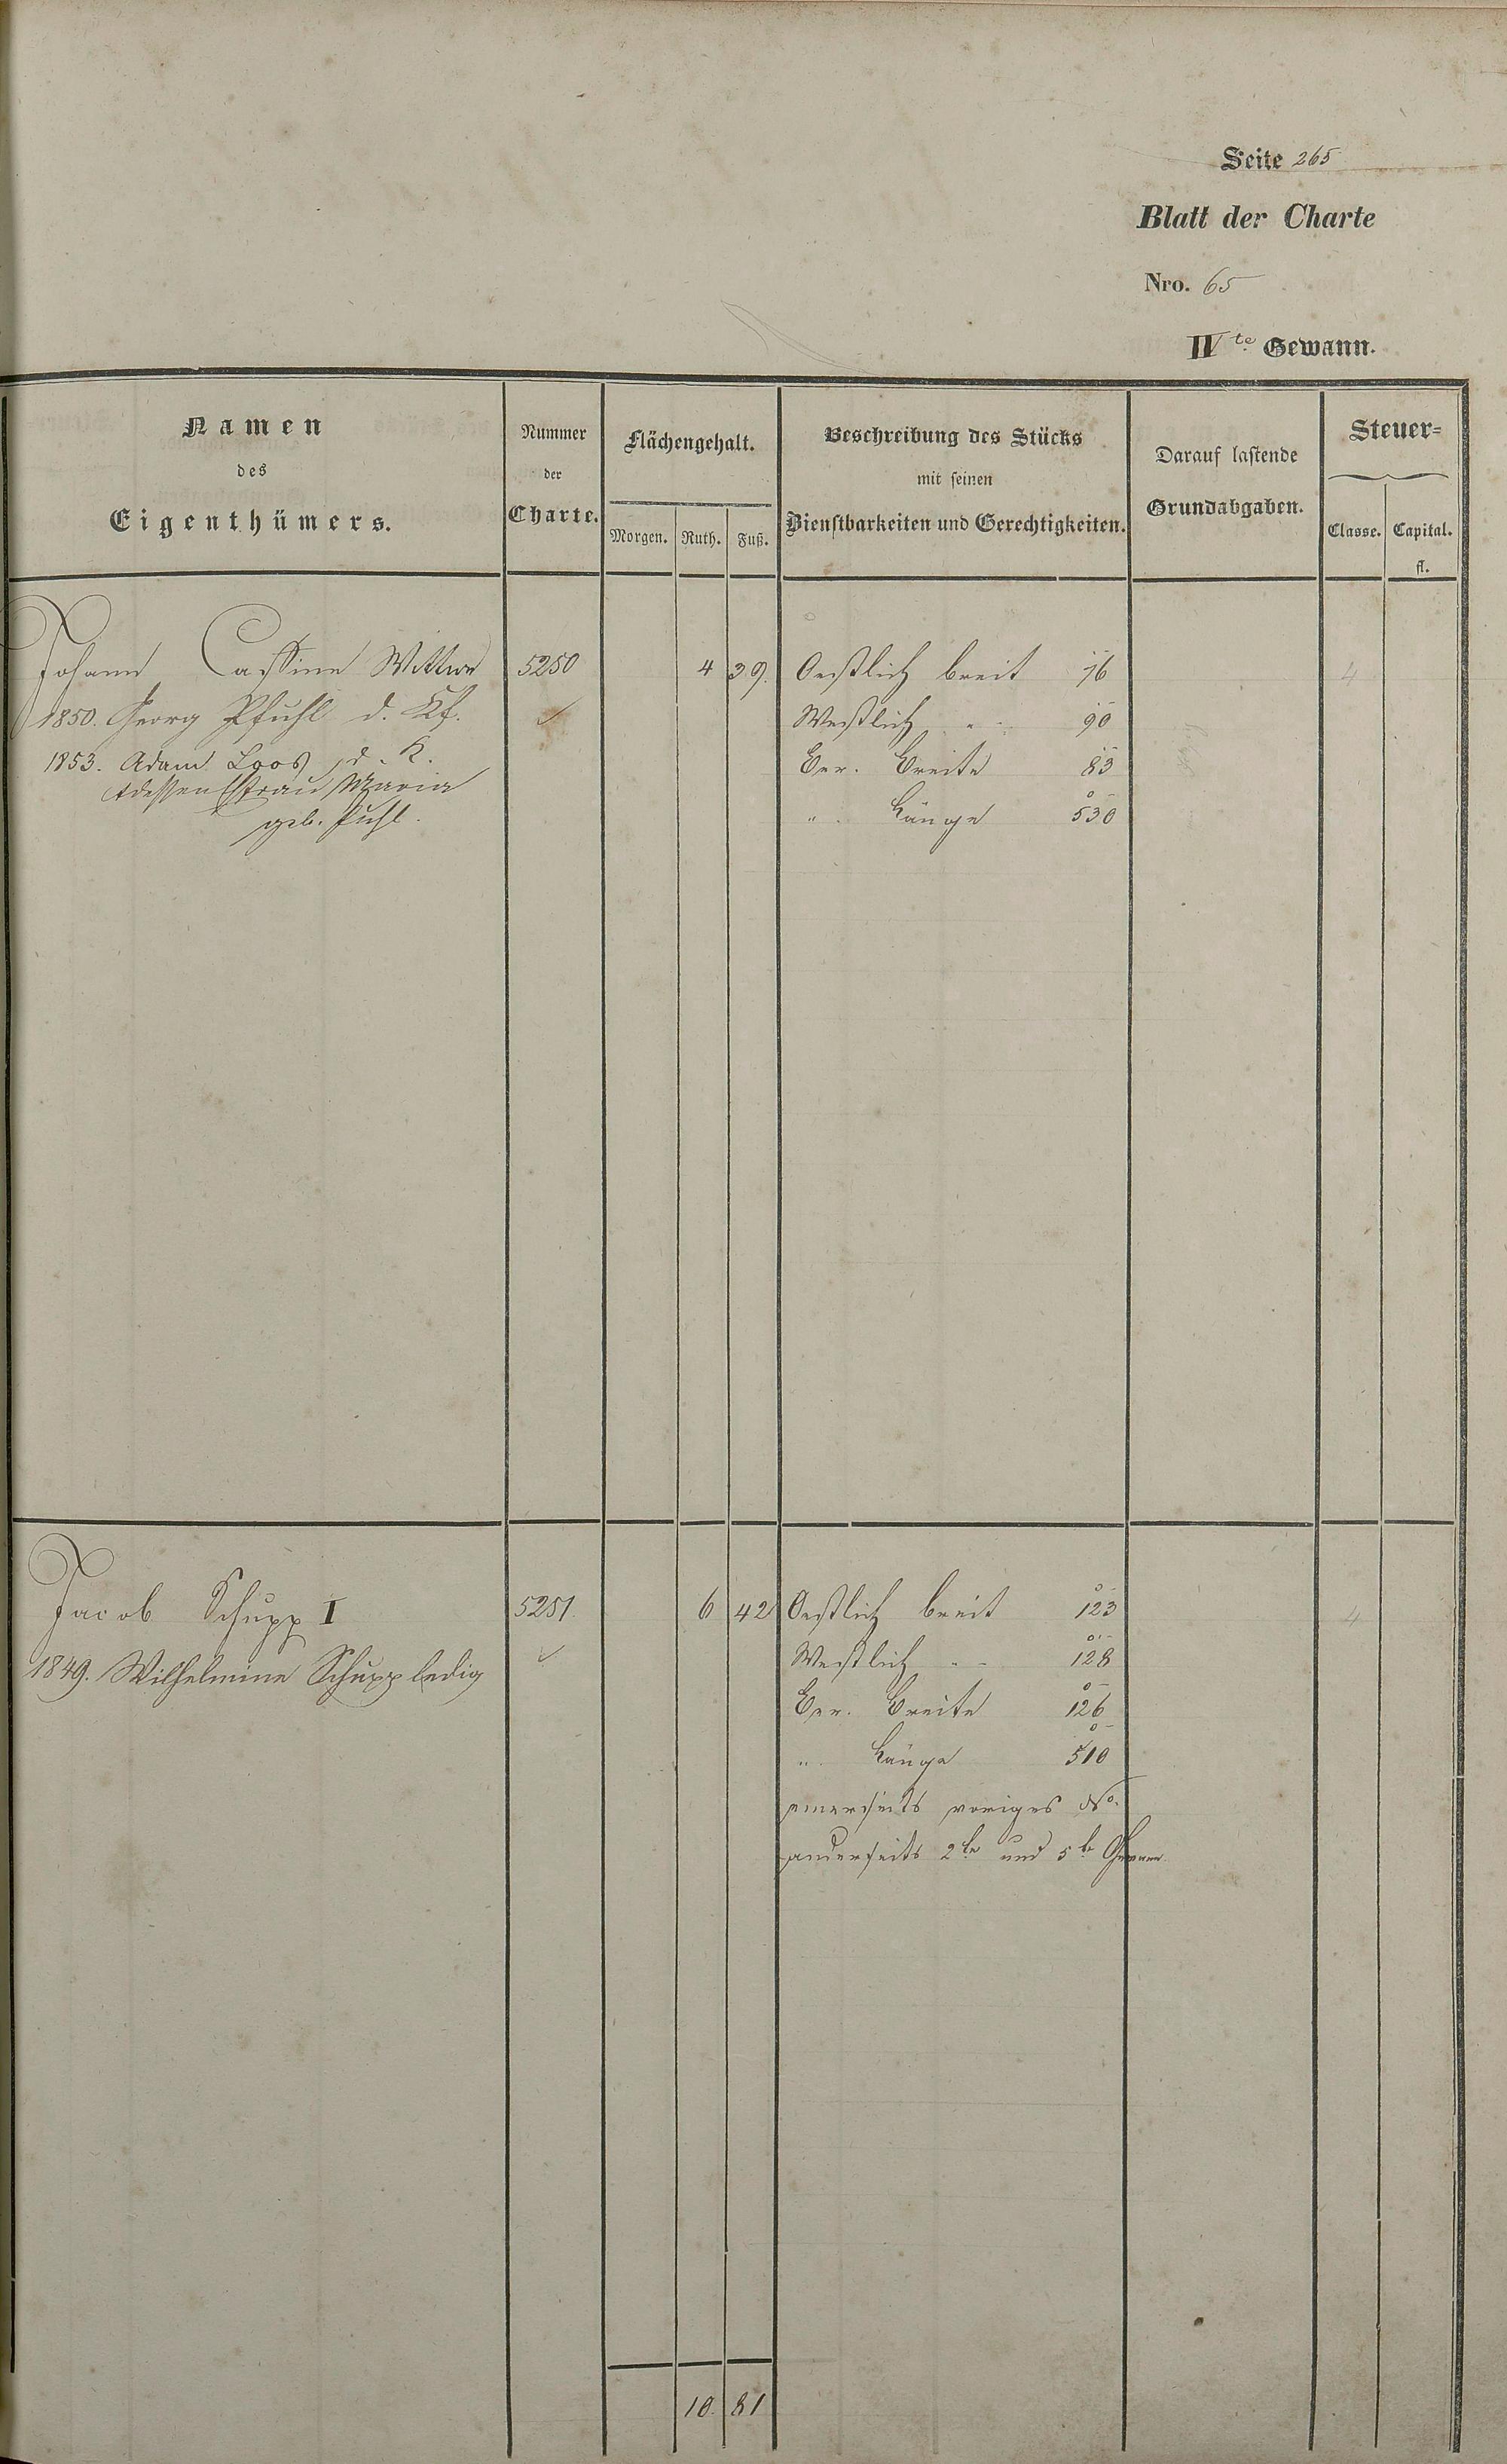 Seite 265
Blatt der Charte
Nro. 65
IVte Gewann.
Namen
des
Eigenthümers.
Nummer
der
Charte.
Flächengehalt.
Morgen. Ruth. Fuß.
Beschreibung des Stücks
mit seinen
Dienstbarkeiten und Gerechtigkeiten.
Darauf lastende
Grundabgaben.
Steuer-
Classe. Capital.
fl.
Johann Cassine Wittwe 5250 4 39. Oestlich breit 76 4
1850. Georg Pfuhl d. Kf. Westlich " 90
1853. Adam Loos, d. K. Ber. Breite 83
& dessen Efrau Maria
geb. Puhl. " Länge 530
Jacob Schupp I 5251. 6 42 Oestlich breit 123 4
1849. Wilhelmine Schupp ledig Westlich " 128
Ber. Breite 126
" Länge 510
einerseits voriges No.
anderseits 2te und 5te Gewann.
10. 81